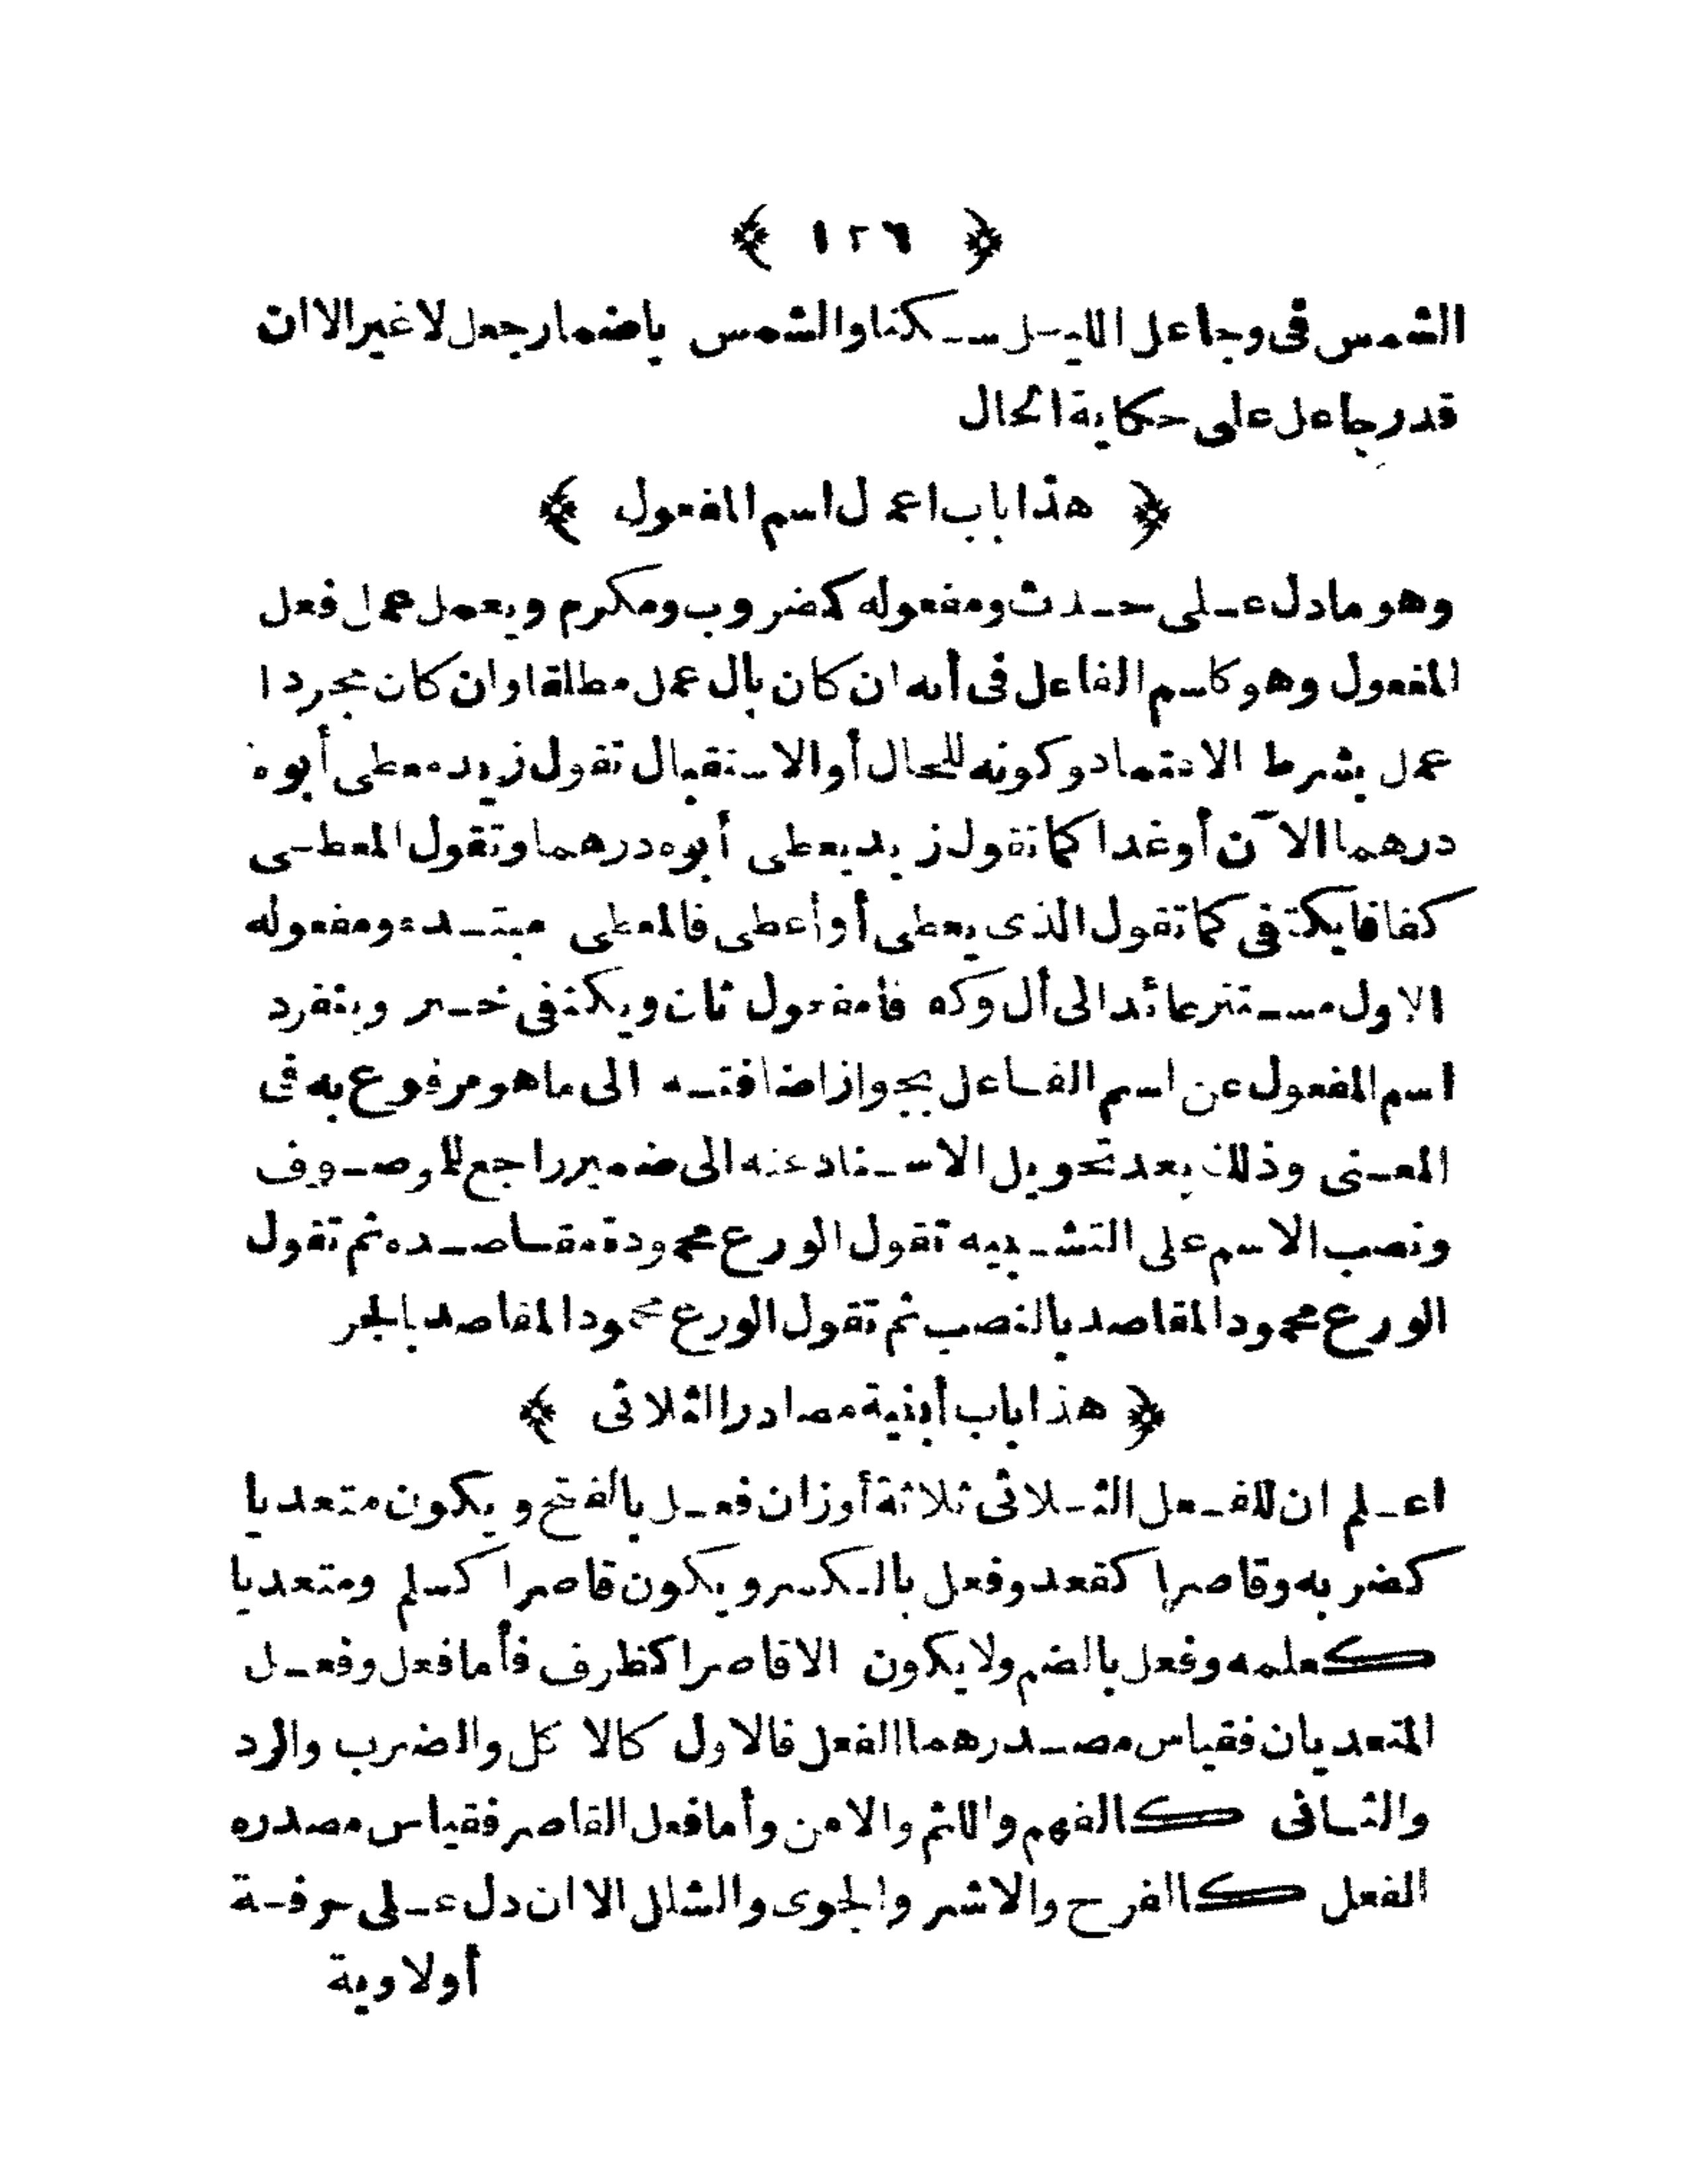 ﴿ ١٢٦ ﴾
الشمس فى وجاعل الليل سكنا والشمس باضمار جعل لا غير الا ان
قدر جاعل على حكاية الحال
﴿ هذا باب اعمال اسم المفعول ﴾
وهو ما دل على حدث ومفعوله كمضروب ومكرم ويعمل عمل فعل
المفعول وهو كاسم الفاعل فى أنه ان كان بال عمل مطلقا وان كان مجردا
عمل بشرط الاعتماد وكونه للحال أو الاستقبال تقول زيد معطى أبوه
درهما الآن أو غدا كما تقول زيد يعطى أبوه درهما وتقول المعطى
كفافا يكتفى كما تقول الذى يعطى أو أعطى فالمعطى مبتدء ومفعوله
الاول مستتر عائد الى أل وكفافا مفعول ثان ويكتفى خبر وينفرد
اسم المفعول عن اسم الفاعل بجواز اضافته الى ما هو مرفوع به فى
المعنى وذلك بعد تحويل الاسناد عنه الى ضمير راجع للموصوف
ونصب الاسم على التشبيه تقول الورع محمودة مقاصده ثم تقول
الورع محمود المقاصد بالنصب ثم تقول الورع محمود المقاصد بالجر
﴿ هذا باب أبنية مصادر الثلاثى ﴾
اعلم ان للفعل الثلاثى ثلاثة أوزان فعل بالفتح ويكون متعديا
كضربه وقاصرا كقعد وفعل بالكسر ويكون قاصرا كسلم ومتعديا
كعلمه وفعل بالضم ولا يكون الا قاصرا كظرف فأما فعل وفعل
المتعديان فقياس مصدرهما الفعل فالاول كالاكل والضرب والرد
والثانى كالفهم واللثم والامن وأما فعل القاصر فقياس مصدره
الفعل كالفرح والاشر والجوى والشلل الا ان دل على حرفة
أو لاوية